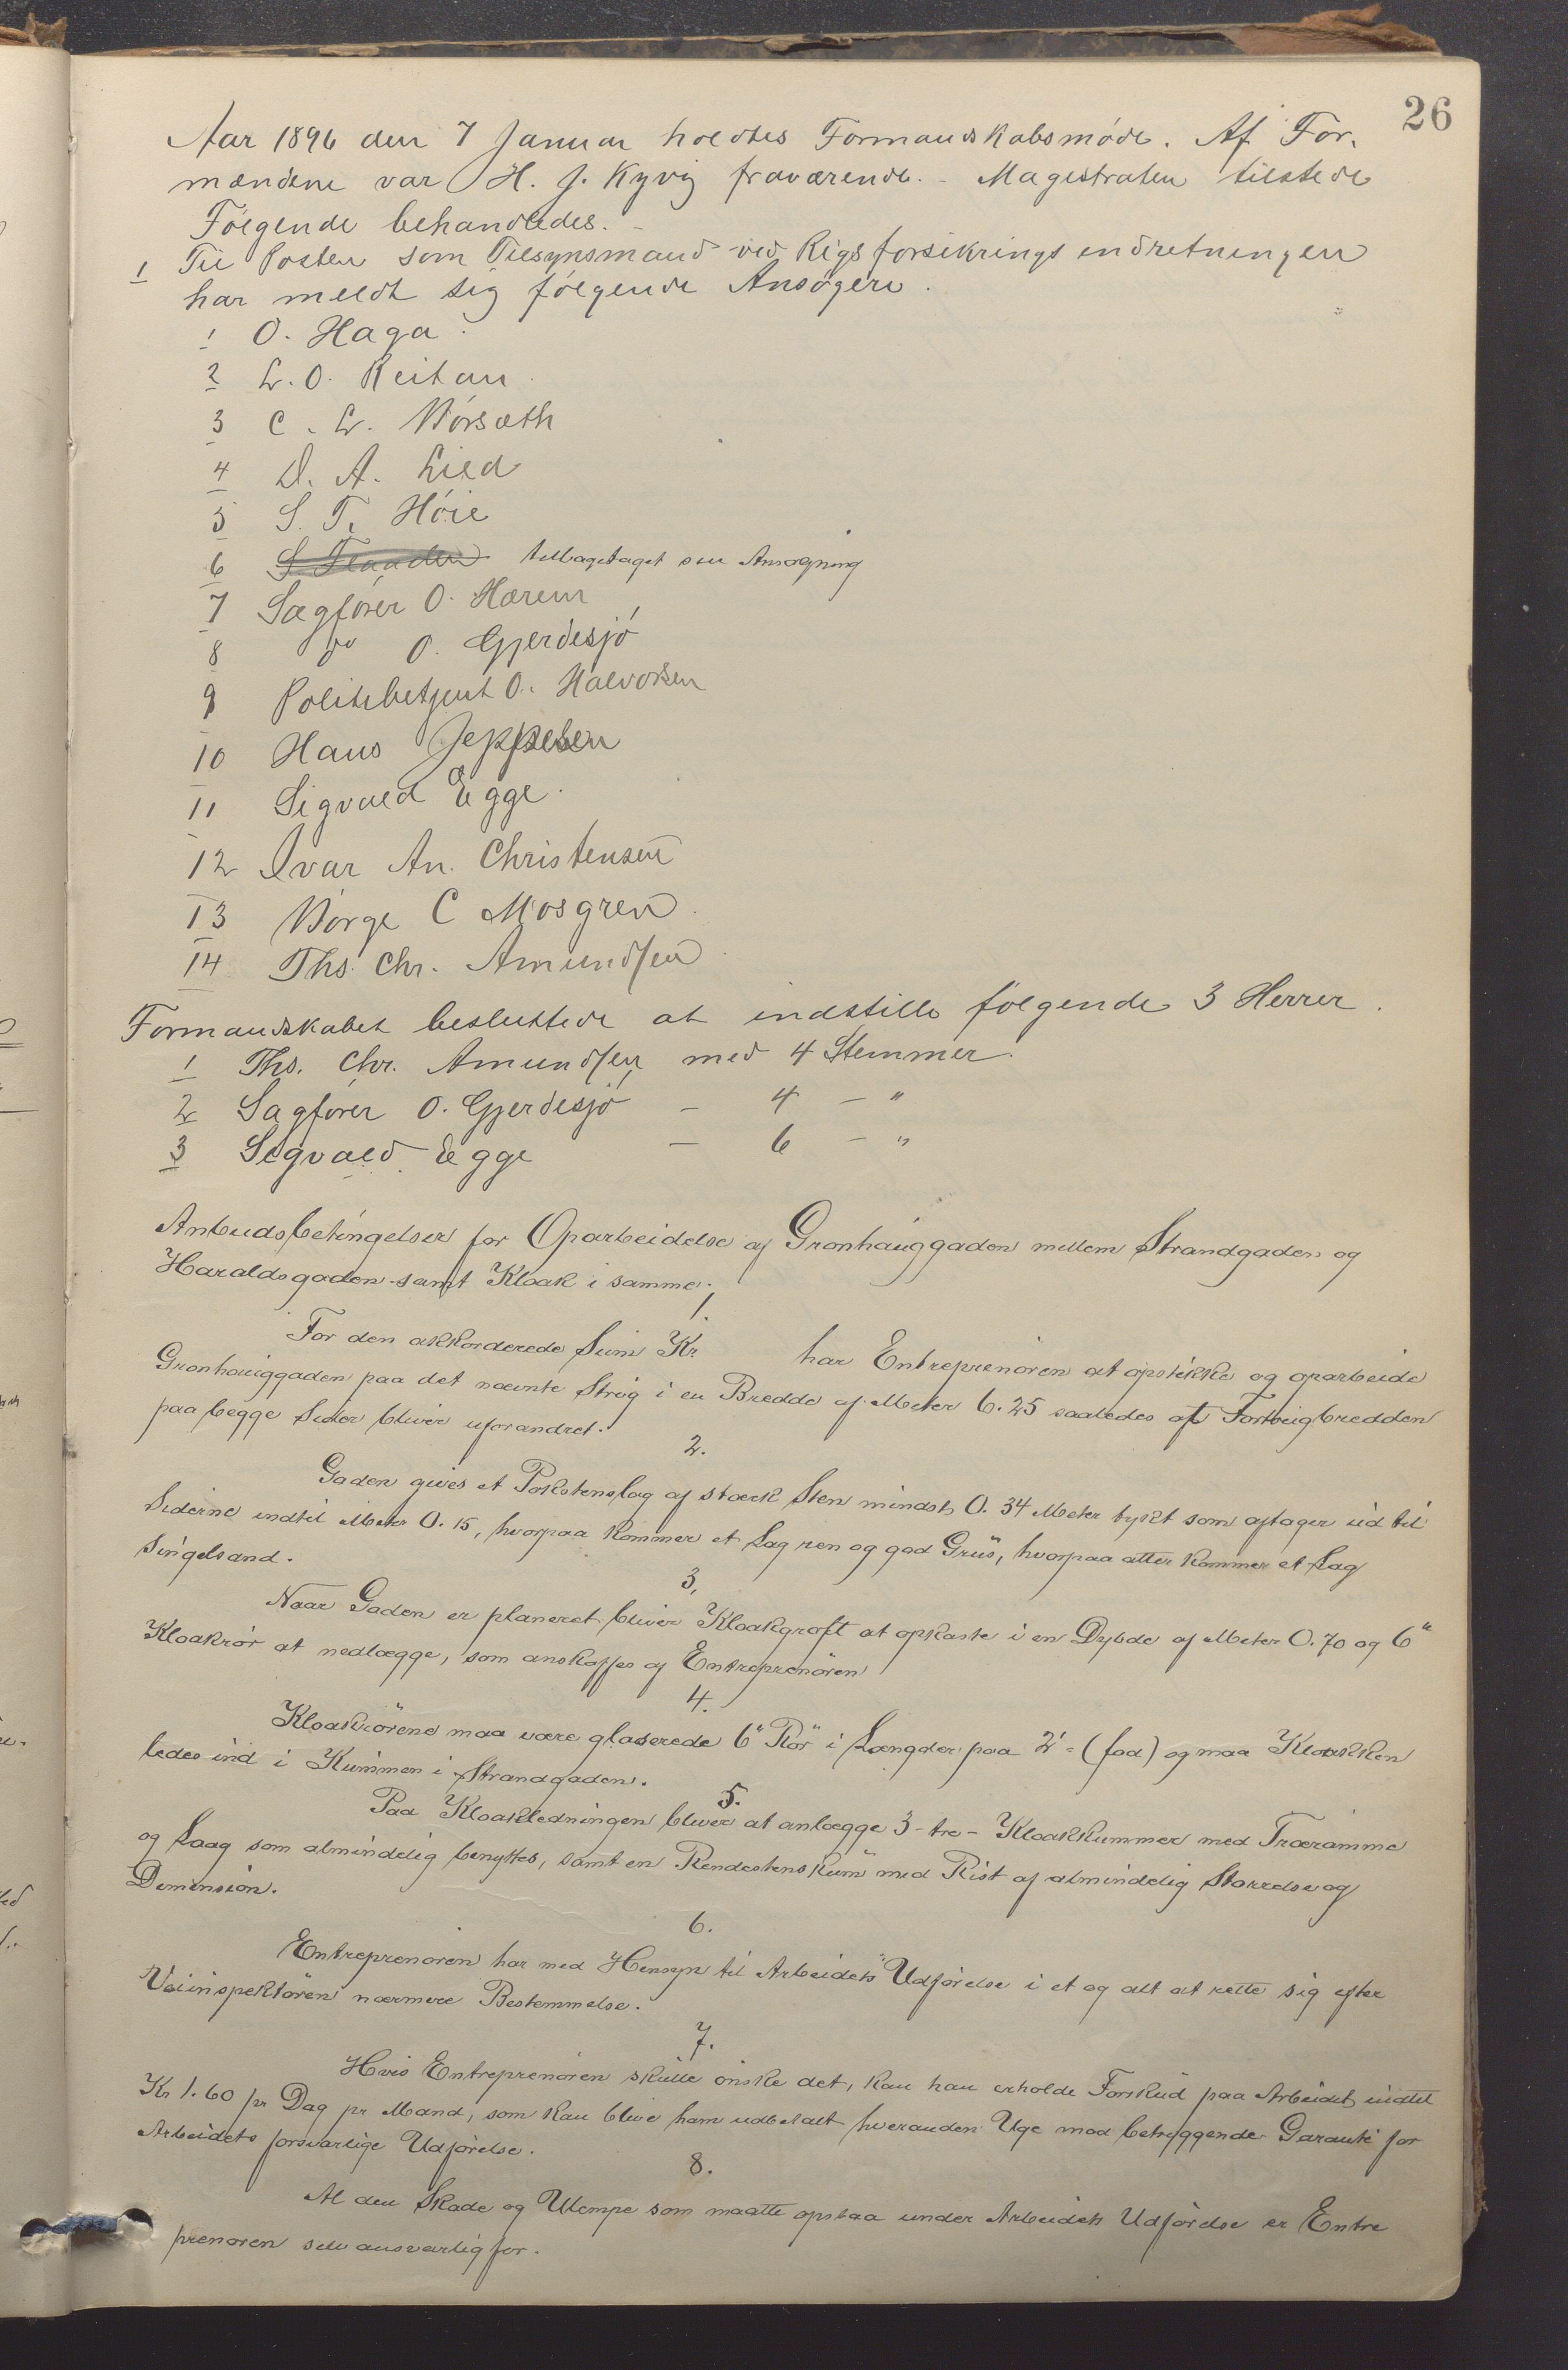 26
Aar 1896 den 7 Januar holdtes Formandskabsmøde. Af For-
mændene var H. J. Kyvig fraværende. - Magistraten tilstede
Følgende behandledes. -
1 Til Posten som Tilsynsmand ved Rigsforsikringsindretningen
har meldt sig følgende Ansøgere.
1 O. Haga.
2 L. O. Reitan.
3 C. L. Børsæth
4 D. A. Lied
5 S. T. Høie
6 tilbagetaget sin Ansøgning
7 Sagfører O. Harem
8 do O. Gjerdesjø
9 Politibetjent O. Halvorsen
10 Hans Jeppesen
11 Sigvald Egge.
12 Ivar An. Christensen
13 Børge C Mosgren.
14 Ths. Chr. Amundsen.
Formandskabet besluttede at indstille følgende 3 Herrer.
1 Ths. Chr. Amundsen med 4 Stemmer.
2 Sagfører O. Gjerdesjø - 4 - "
3 Sigvald Egge - 6 - "
Anbudsbetingelser for Oparbeidelse af Grønhauggaden mellem Strandgaden og
Haraldsgaden samt Kloak i samme.
1.
For den akkorderede Sum Kr har Entreprenøren at opstikke og oparbeide
Grønhauggaden paa det nævnte Strøg i en Bredde af Meter 6.25 saaledes at Fortaugbredden
paa begge Sider bliver uforandret.
2.
Gaden gives et Pakstenslag af stærk Sten mindst 0.34 Meter tykt som aftager ud til
Siderne indtil Meter 0.15, hvorpaa kommer et Lag ren og god Grus, hvorpaa atter kommer et Lag
Singelsand.
3.
Naar Gaden er planeret bliver Kloakgrøft at opkaste i en Dybde af Meter 0.70 og 6"
Kloakrør at nedlægge, som anskaffes af Entreprenøren
4.
Kloakrørene maa være glaserede 6" Rør i Længder paa 2' = (fod) og maa Kloakken
ledes ind i Kummen i Strandgaden.
5.
Paa Kloakledningen bliver at anlægge 3 - tre - Kloakkummer med Træramme
og Laag som almindelig benyttes, samt en Rendestenskum med Rist af almindelig Størrelse og
Demension.
6.
Entreprenøren har med Hensyn til Arbeidets Udførelse i et og alt at rette sig efter
Veiinspektøren nærmere Bestemmelse.
7.
Hvis Entreprenøren skulle ønske det, kan han erholde Forskud paa Arbeidet indtil
Kr 1.60 pr Dag pr Mand, som kan blive ham udbetalt hveranden Uge mod betryggende Garanti for
Arbeidets forsvarlige Udførelse.
8.
Al den Skade og Ulempe som maatte opstaa under Arbeidets Udførelse er Entre
prenøren selv ansvarlig for.